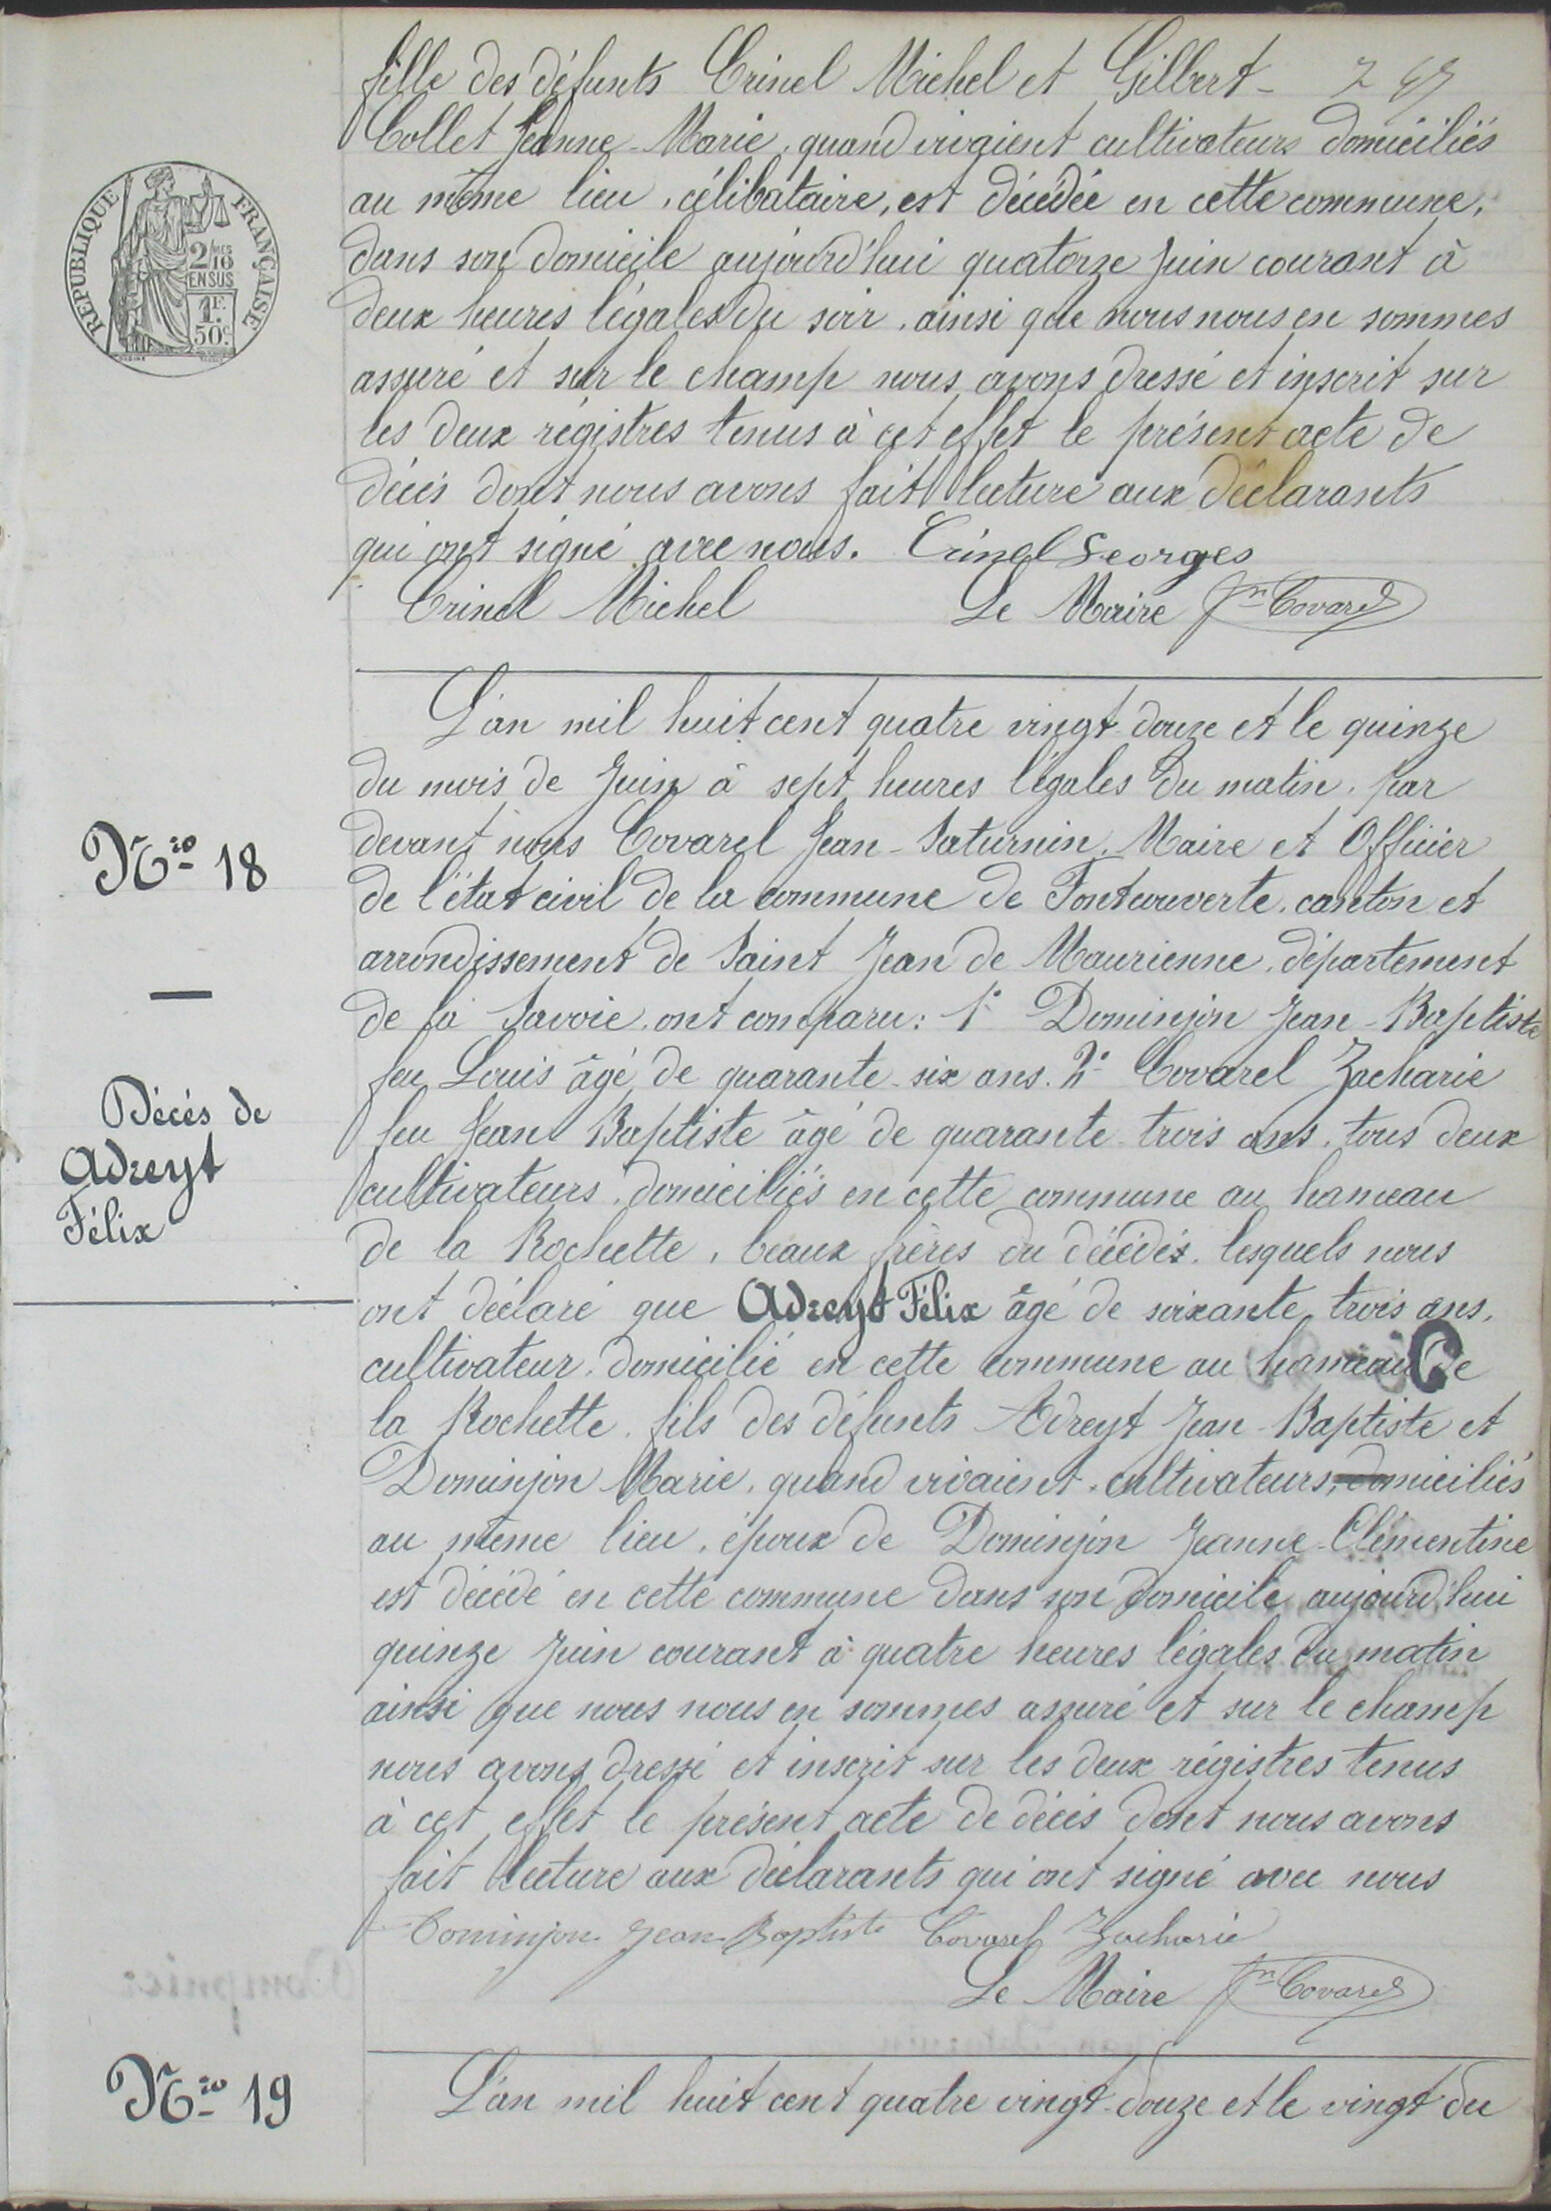 fille des défunts Crinel Michel et Gilbert-
Collet Jeanne-Marie, quand vivaient cultivateurs domiciliés
au même lieu, célibataire, est décédée en cette commune,
dans son domicile aujourd'hui quatorze Juin courant à
deux heures légales du soir, ainsi que nous nous en sommes
assuré et sur le champ nous avons dressé et inscrit sur
les deux régistres tenus à cet effet le présent acte de
décès dont nous avons fait lecture aux déclarants
qui ont signé avec nous. Crinel Georges
Crinel Michel Le Maire Jn Covarel
REPUBLIQUE FRANÇAISE
2/10
EN SUS
1F.
50c.
L'an mil huit cent quatre vingt-douze et le quinze
du mois de Juin à sept heures légales du matin, par
devant nous Covarel Jean-Saturnin, Maire et Officier
de l'état civil de la commune de Fontcouverte, canton et
arrondissement de Saint Jean de Maurienne, département
de la Savoie, ont comparu: 1° Dominjon Jean-Baptiste
feu Louis âgé de quarante-six ans. 2° Covarel Zacharie
feu Jean Baptiste âgé de quarante-trois ans, tous deux
cultivateurs, domiciliés en cette commune au hameau
de la Rochette, beaux frères du décédés, lesquels nous
ont déclaré que Adreyt Félix âgé de soixante trois ans,
cultivateur, domicilié en cette commune au hameau de
la Rochette, fils des défunts Adreyt Jean-Baptiste et
Dominjon Marie, quand vivaient, cultivateurs, domiciliés
au même lieu, époux de Dominjon Jeanne-Clémentine
est décédé en cette commune dans son domicile aujourd'hui
quinze Juin courant à quatre heures légales du matin
ainsi que nous nous en sommes assuré et sur le champ
nous avons dressé et inscrit sur les deux régistres tenus
à cet effet le présent acte de décès dont nous avons
fait lecture aux déclarants qui ont signé avec nous
Dominjon Jean-Baptiste Covarel Zacharie
Le Maire Jn Covarel
Nro 18
Décés de
Adreyt
Félix
Nro 19
L'an mil huit cent quatre vingt-douze et le vingt du